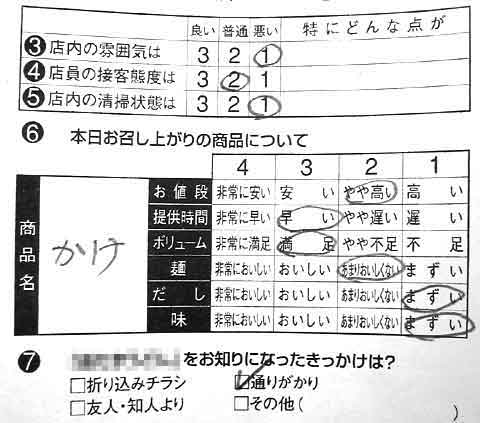 良い 普通 悪い 特にどんな点が
③店内の雰囲気は 3 2 1
④店員の接客態度は 3 2 1
⑤店内の清掃状態は 3 2 1
⑥ 本日お召し上がりの商品について
4 3 2 1
商品名 かけ
お値段 非常に安い 安い やや高い 高い
提供時間 非常に早い 早い やや遅い 遅い
ボリューム 非常に満足 満足 やや不足 不足
麺 非常においしい おいしい あまりおいしくない まずい
だし 非常においしい おいしい あまりおいしくない まずい
味 非常においしい おいしい あまりおいしくない まずい
⑦ をお知りになったきっかけは?
□折り込みチラシ ☑通りがかり
□友人・知人より □その他( )